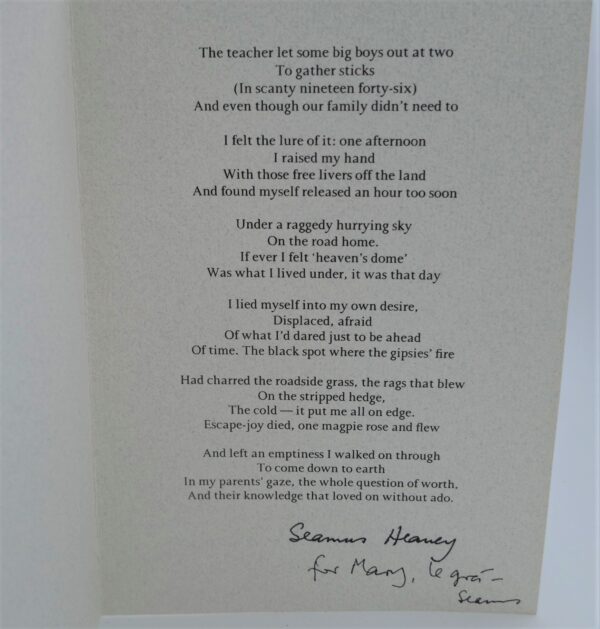 The teacher let some big boys out at two
To gather sticks
(In scanty nineteen forty-six)
And even though our family didn't need to
I felt the lure of it: one afternoon
I raised my hand
With those free livers off the land
And found myself released an hour too soon
Under a raggedy hurrying sky
On the road home.
If ever I felt ‘heaven's dome’
Was what I lived under, it was that day
I lied myself into my own desire,
Displaced, afraid
Of what I'd dared just to be ahead
Of time. The black spot where the gipsies' fire
Had charred the roadside grass, the rags that blew
On the stripped hedge,
The cold — it put me all on edge.
Escape-joy died, one magpie rose and flew
And left an emptiness I walked on through
To come down to earth
In my parents' gaze, the whole question of worth,
And their knowledge that loved on without ado.
Seamus Heaney
for Mary, le grá –
Seamus